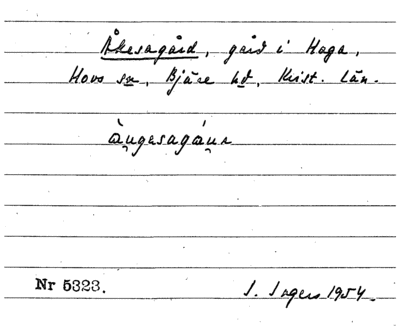 Åkesagård, gård i Haga,
Hovs sn, Bjäre hd, Krist. län.
Nr 5323.
I. Ingers 1954.